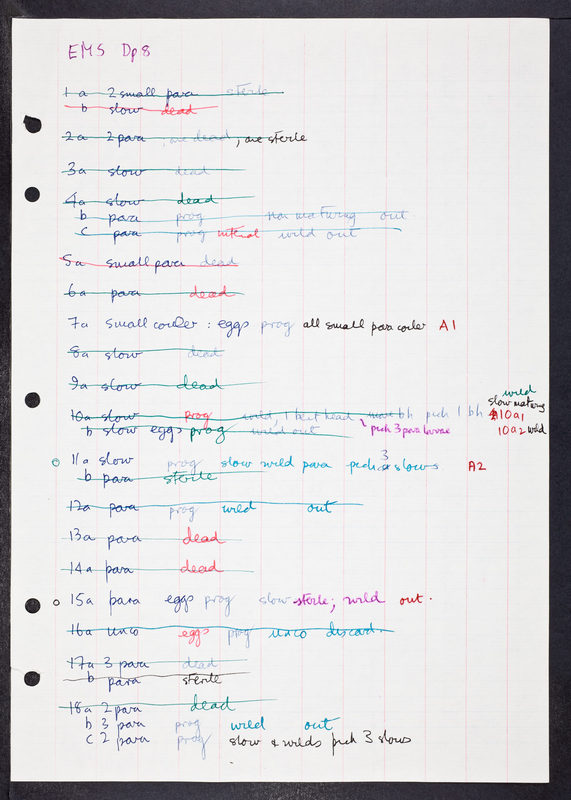 EMS Dp8
1a 2 small para sterile
b slow dead
2a 2 para , one dead, one sterile
3a slow dead
4a slow dead
b para prog non maturing out
c para prog wild out
5a small para dead
6a para dead
7a Small coiler : eggs prog all small para coiler A1
8a slow dead
9a slow dead
wild
slow maturing
10a slow prog wild, 1 bent head, bh pick 1 bh 10a1
b slow eggs prog wild out pick 3 para larvae 10a2 wild
3
11a slow prog slow wild para pick slows A2
b para sterile
12a para prog wild out
13a para dead
14a para dead
15a para eggs prog slow sterile; wild out.
16a unco eggs prog unco discard.
17a 3 para dead
b para sterile
18a 2 para dead
b 3 para prog wild out
c 2 para prog slow & wilds pick 3 slows